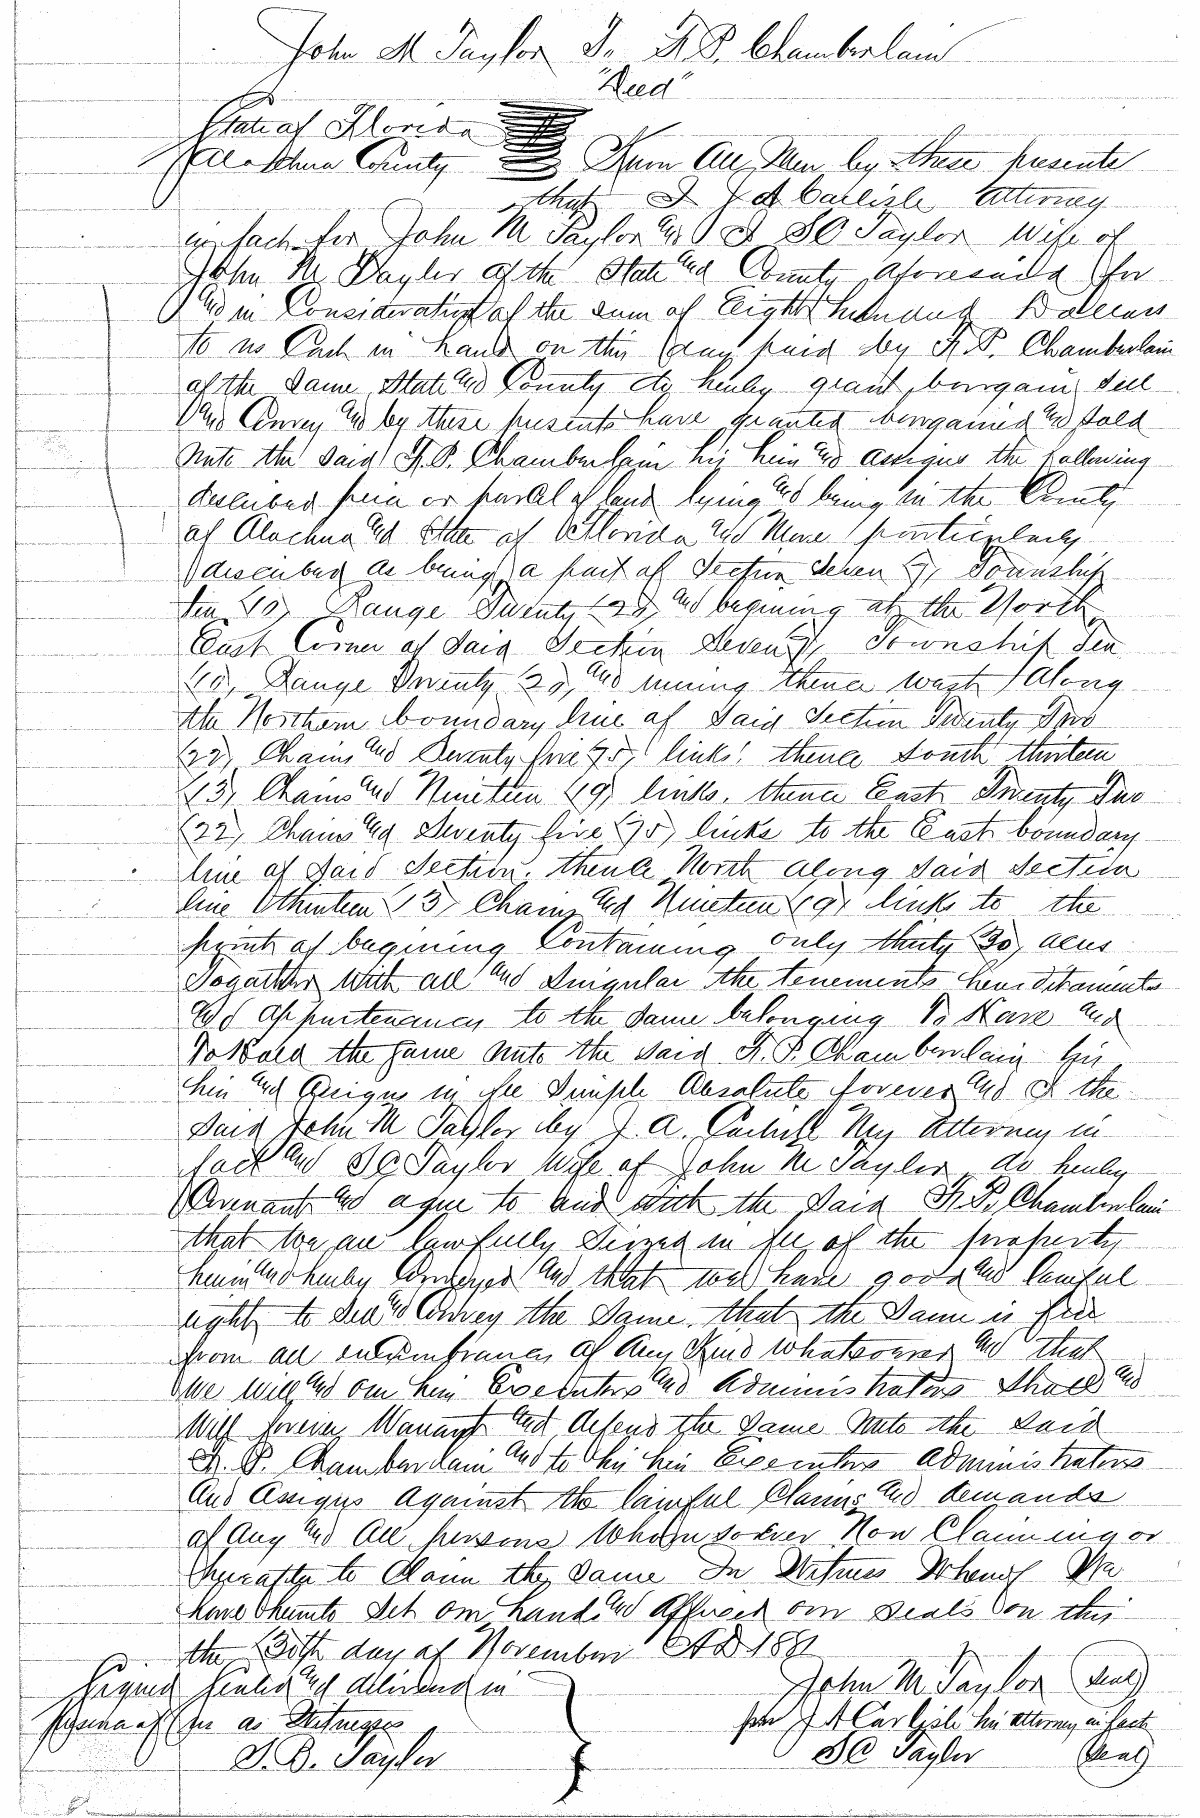 John M Taylor To F. P. Chamberlain
"Deed"
State of Florida
Alachua County Know All Men by these presents
that I J A Carlisle Attorney
in fact for John M Taylor and I S C Taylor Wife of
John M Taylor of the State and County aforesaid for
and in Consideration of the sum of Eight hundred Dollars
to us Cash in hand on this day paid by F. P. Chamberlain
of the Same State and County do hereby grant bargain Sell
and Convey and by these presents have granted bargained and Sold
unto the Said F. P. Chamberlain his heirs and assigns the following
described piece or parcel of land lying and being in the County
of Alachua and State of Florida and More particularly
described as being a part of Section Seven (7) Township
Ten (10) Range Twenty (20) and begining at the North
East Corner of Said Section Seven (7) Township Ten
(10) Range Twenty (20) and runing thence west Along
the Northern boundary line of Said Section Twenty Two
(22) Chains and Seventy five (75) links, thence South thirteen
(13) Chains and Nineteen (19) links, thence East Twenty Two
(22) Chains and Seventy five (75) links to the East boundary
line of Said Section, thence North along Said Section
line thirteen (13) Chains and Nineteen (19) links to the
point of begining Containing only thirty (30) acres
Togather With all and Singular the tenements hereditaments
and appurtenances to the Same belonging To Have and
To Hold the Same unto the said F. P. Chamberlain his
heirs and Assigns in fee Simple Absolute forever and I the
Said John M Taylor by J. A. Carlisle My Attorney in
fact and S C Taylor Wife of John M Taylor do hereby
Covenant and agree to and with the Said F. P. Chamberlain
that we are lawfully Siezed in fee of the property
herein and hereby Conveyed and that we have good and lawful
right to Sell and Convey the Same. that the Same is free
from all encumbrances of Any Kind whatsoever and that
we will and our heirs Executors and Administrators Shall and
Will forever Warrant and defend the Same unto the Said
F. P. Chamberlain and to his heirs Executors Administrators
and Assigns against the lawful Claims and demands
of Any and All persons Whomsoever Now Claiming or
hereafter to Claim the Same In Witness Whereof We
have hereunto Set our hands and Affixed our Seals on this
the 30th day of November A D 188
Signed Sealed and delivered in John M Taylor (Seal)
presence of us as Witnesses per J A Carlisle his attorney in fact
J. B. Taylor S C Taylor (Seal)